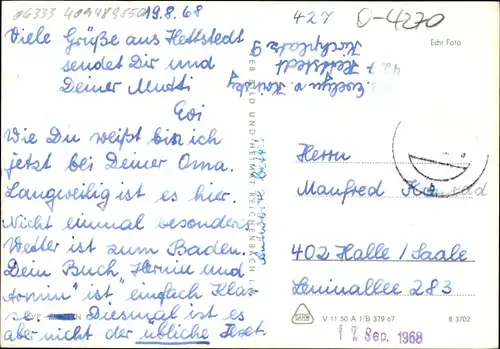 06333 409489850
19.8.68
427
O-4270
Echt Foto
Viele Grüße aus Hettstedt
sendet Dir und
Deiner Mutti
Evi
Wie Du weißt bin ich
jetzt bei Deiner Oma.
Langweilig ist es hier.
Nicht einmal besonderes
Wetter ist zum Baden.
Dein Buch "Hernin und
Armin" ist "einfach Klas-
se. Diesmal ist es
aber nicht der übliche Text.
Evelyn v.
427 Hettstedt
Kirchplatz 9
VEB BILD UND HEIMAT REICHENBACH I. V.
Herrn
Manfred
402 Halle / Saale
Leninallee 283
V 11 50 A 1/B 379 67
B 3702
17. Sep. 1968